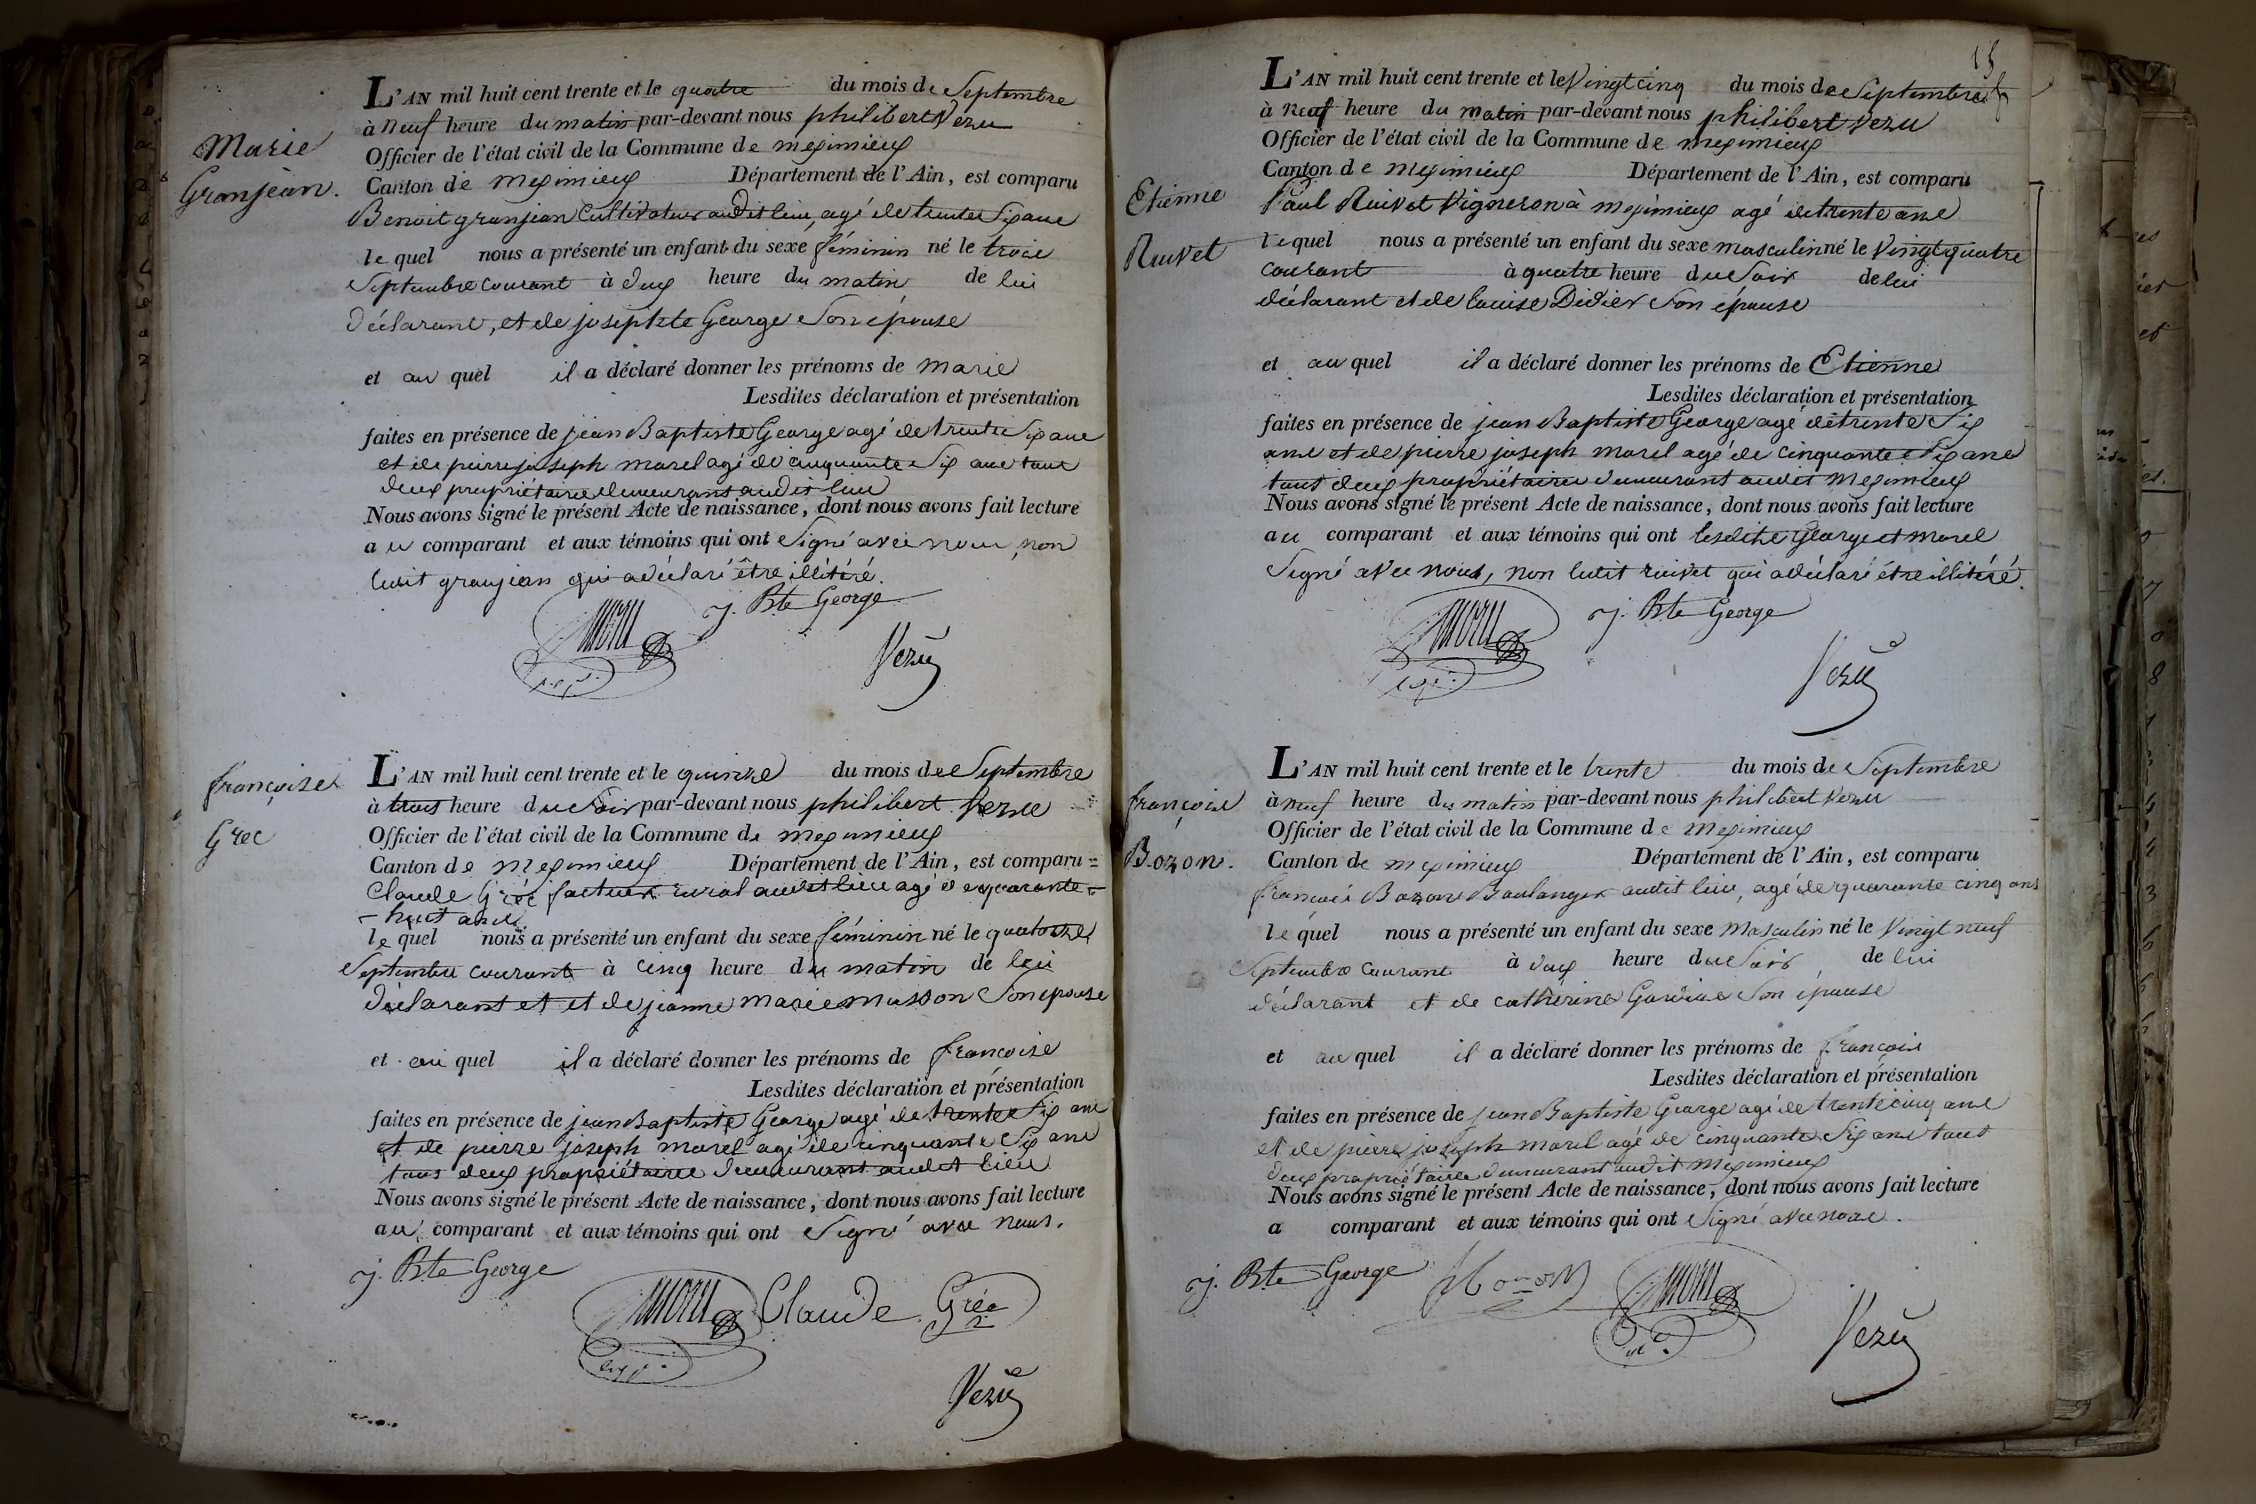 Marie
Granjean.
L'AN mil huit cent trente et le quatre du mois de Septembre
à neuf heure du matin par-devant nous philibert Vezu
Officier de l'état civil de la Commune de meximieux
Canton de meximieux Département de l'Ain, est comparu
Benoit granjean Cultivateur audit lieu, agé de trente Six ans
le quel nous a présenté un enfant du sexe féminin né le trois
Septembre courant à deux heure du matin de lui
déclarant, et de josephte George Son épouse
et au quel il a déclaré donner les prénoms de Marie
Lesdites déclaration et présentation
faites en présence de jean Baptiste George agé de trente Six ans
et de pierre joseph morel agé de cinquante Six ans tous
deux propriétaires demeurant audit lieu
Nous avons signé le présent Acte de naissance, dont nous avons fait lecture
au comparant et aux témoins qui ont Signé avec nous, non
ledit granjean qui a déclaré être illitéré.
j. Bte George
Vezu
françoise
Grec
L'AN mil huit cent trente et le quinze du mois de Septembre
à trois heure du Soir par-devant nous philibert Vezu
Officier de l'état civil de la Commune de meximieux
Canton de meximieux Département de l'Ain, est comparu =
Claude Gréc facteur rural audit lieu agé de quarante =
- huit ans
le quel nous a présenté un enfant du sexe féminin né le quatorze
Septembre courant à cinq heure du matin de lui
déclarant et et de jeanne marie musson Son épouse
et au quel il a déclaré donner les prénoms de françoise
Lesdites déclaration et présentation
faites en présence de jean Baptiste George agé de trente Six ans
et de pierre joseph morel agé de cinquante Six ans
tous deux propriétaires demeurant audit lieu
Nous avons signé le présent Acte de naissance, dont nous avons fait lecture
au comparant et aux témoins qui ont Signé avec nous.
j. Bte George
Claude Gréc
Vezu
15
Etienne
Ruivet
L'AN mil huit cent trente et le Vingt cinq du mois de Septembre
à neuf heure du matin par-devant nous philibert Vezu
Officier de l'état civil de la Commune de meximieux
Canton de meximieux Département de l'Ain, est comparu
Paul Ruivet Vigneron à meximieux agé de trente ans
lequel nous a présenté un enfant du sexe masculin né le Vingt quatre
courant à quatre heure du Soir de lui
déclarant et de louise Didier Son épouse
et au quel il a déclaré donner les prénoms de Etienne
Lesdites déclaration et présentation
faites en présence de jean Baptiste George agé de trente Six
ans et de pierre joseph morel agé de cinquante Six ans
tous deux propriétaires demeurant audit meximieux
Nous avons signé le présent Acte de naissance, dont nous avons fait lecture
au comparant et aux témoins qui ont lesdits George et morel
Signé avec nous, non ledit ruivet qui a déclaré être illitéré.
j. Bte George
Vezu
françois
Bozon.
L'AN mil huit cent trente et le trente du mois de Septembre
à neuf heure du matin par-devant nous philibert Vezu
Officier de l'état civil de la Commune de meximieux
Canton de meximieux Département de l'Ain, est comparu
françois Bozon Boulanger audit lieu, agé de quarante cinq ans
lequel nous a présenté un enfant du sexe masculin né le Vingt neuf
Septembre courant à deux heure du Soir de lui
déclarant et de catherine Son épouse
et au quel il a déclaré donner les prénoms de françois
Lesdites déclaration et présentation
faites en présence de jean Baptiste George agé de trente cinq ans
et de pierre joseph morel agé de cinquante Six ans tous
deux propriétaires demeurant audit meximieux
Nous avons signé le présent Acte de naissance, dont nous avons fait lecture
a comparant et aux témoins qui ont Signé avec nous.
j. Bte George
Vezu